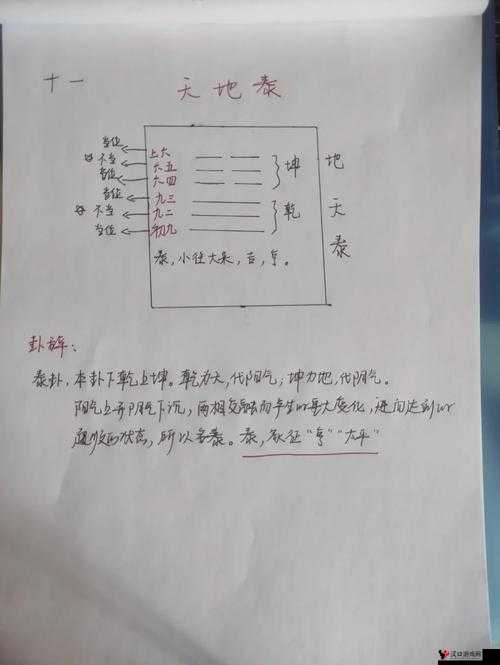 十一
天地泰
当位 上六
不当 六五
当位 六四
坤
当位 九三
不当 九二
当位 初九
乾
地天泰
泰,小往大来,吉,亨。
卦辞:
泰卦,本卦下乾上坤。乾为天,代阳气,坤为地,代阴气。
阳气上升阴气下沉,两相交融而产生的每大变化,进而达到的
的状态,所以名泰。泰,象征“亨”“太平”
汉口游戏网